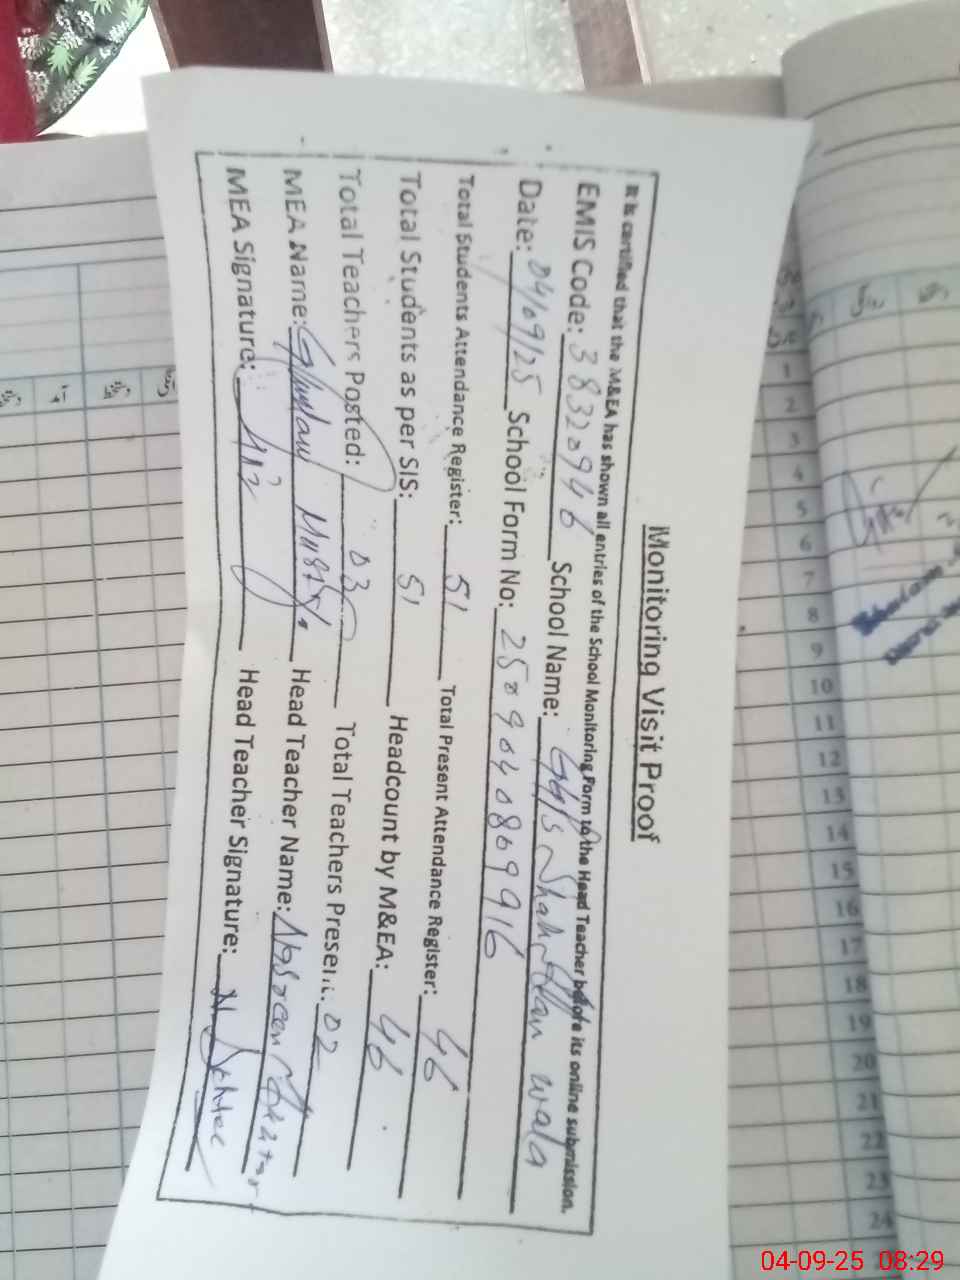 Monitoring Visit Proof
It is certified that the M&EA has shown all entries of the School Monitoring Form to the Head Teacher before its online submission.
EMIS Code: 38320946 School Name: GGPS Shah wala
Date: 04/09/25 School Form No: 2509040869916
Total Students Attendance Register: 51 Total Present Attendance Register: 46
Total Students as per SIS: 51 Headcount by M&EA: 46
Total Teachers Posted: 03 Total Teachers Present: 02
MEA Name: Ghulam Head Teacher Name:
MEA Signature: Head Teacher Signature:
1
2
3
4
5
6
7
8
9
10
11
12
13
14
15
16
17
18
19
20
21
22
23
24
04-09-25 08:29